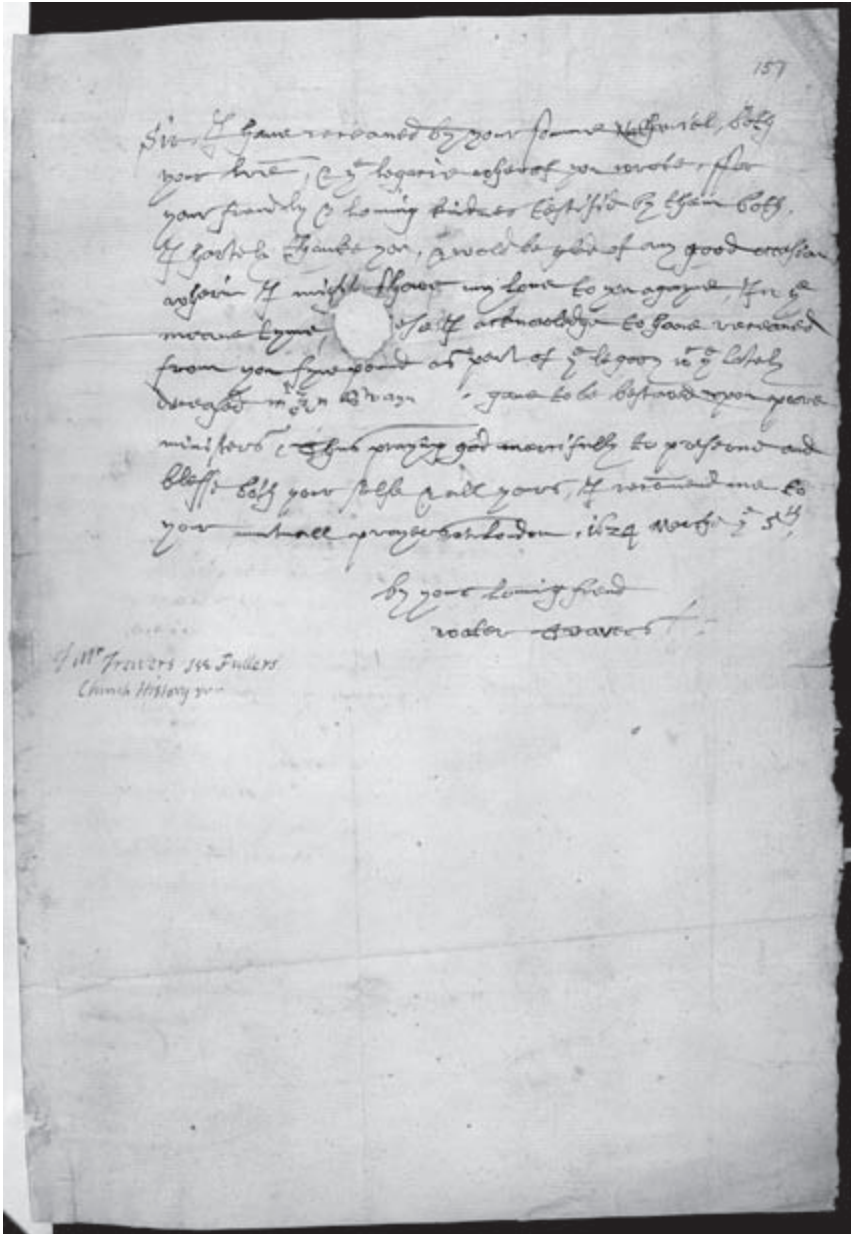 157
Sir, I have receaved by your sonne Nathaniel, both
your lre, & ye legacie wherof you wrote, ffor
your friendly & loving kindnes testified by them both,
I hartely thanke you, & wold be glad of any good occasion
wherin I might shewe my love to you agayne, In ye
meane tyme, I acknowledge to have receaved
from you fyve pound as part of ye legacy wch ye lately
deceased mr gave to be bestowed upon poore
ministers, Thus praying god mercifully to preserve and
blesse both your selfe & all yours, I recomend me to
your mutuall prayers at London, 1624 Marche ye 5th,
by your loving frend
walter Travers
of Mr Travers see Fullers
Church History